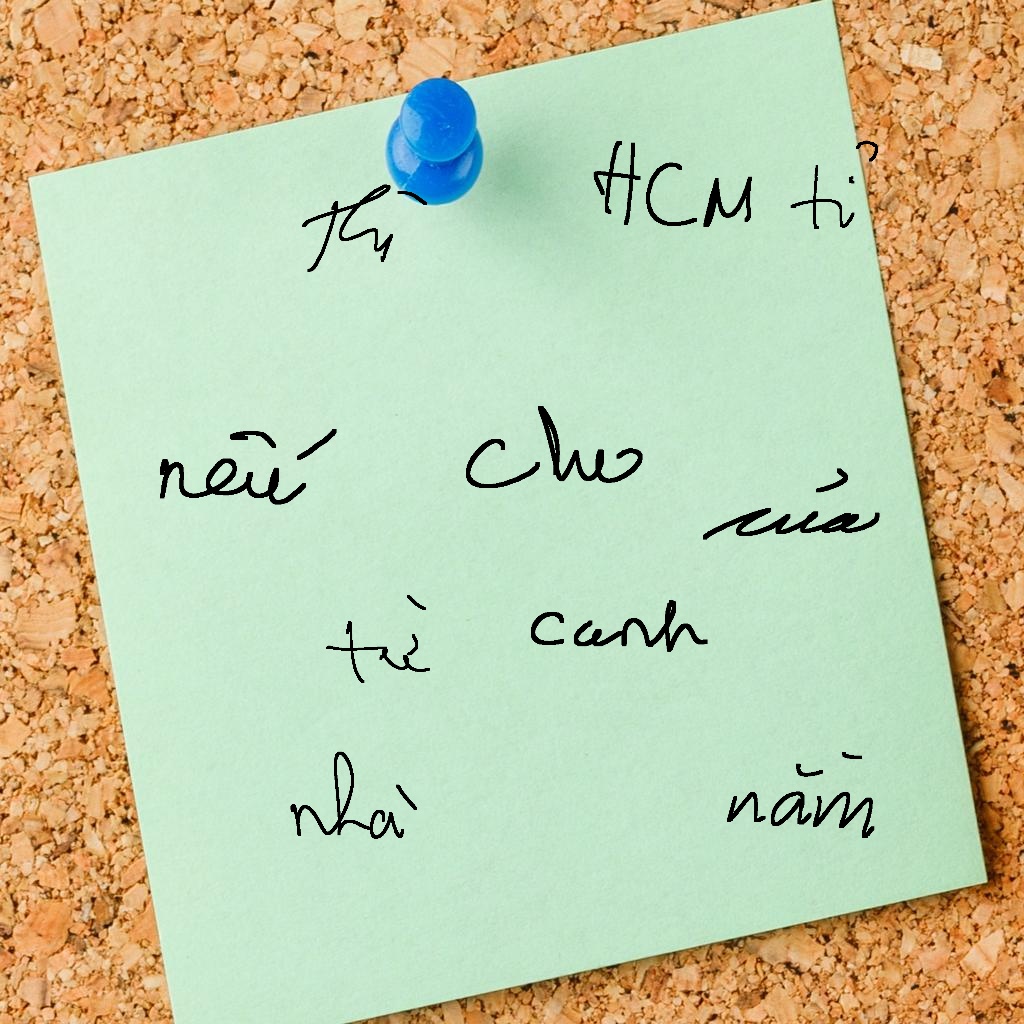 thì HCM tỉ
nếu cho của
từ canh
nhà nằm